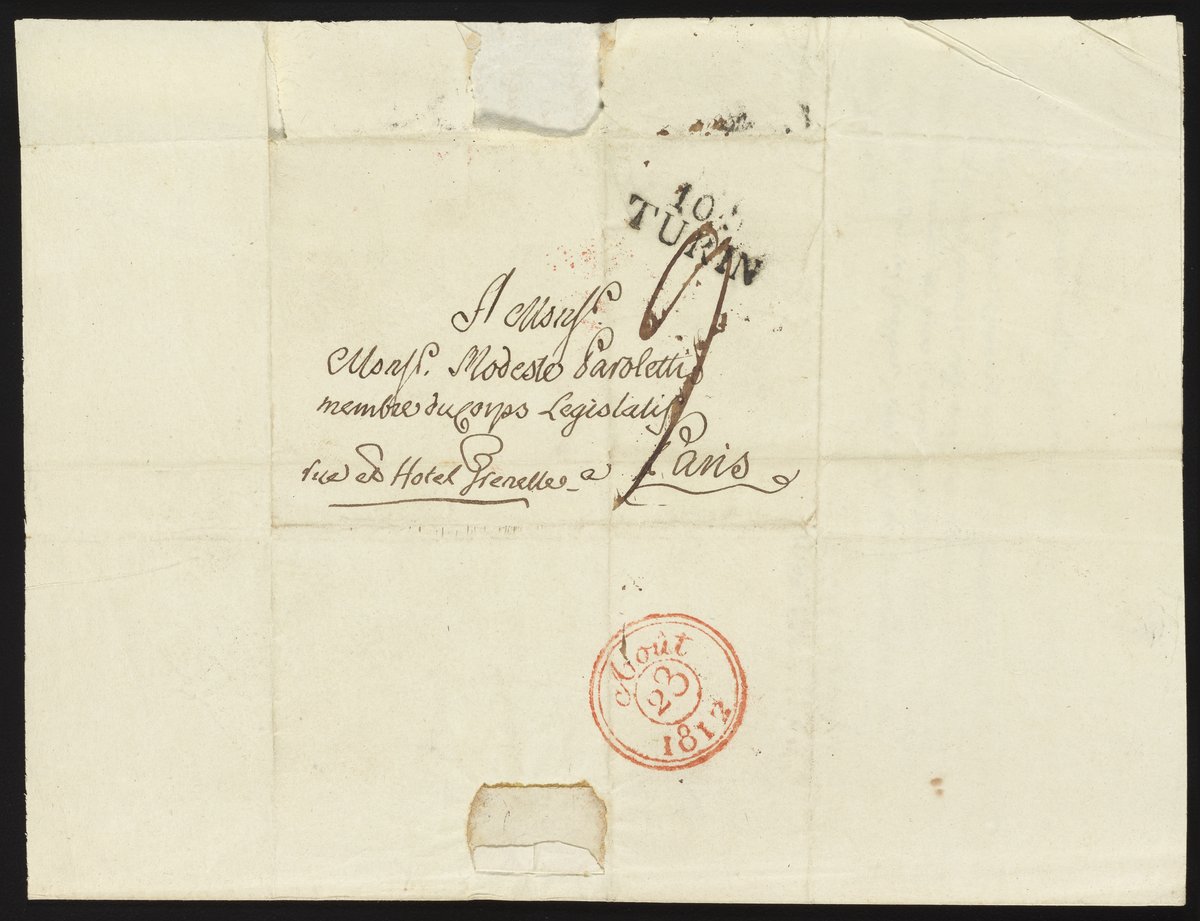 10
TURIN
A Monsr.
Monsr. Modeste Paroletti
membre du Corps Legislatif
rue et Hotel Grenelle - a Paris
Août
23
1812